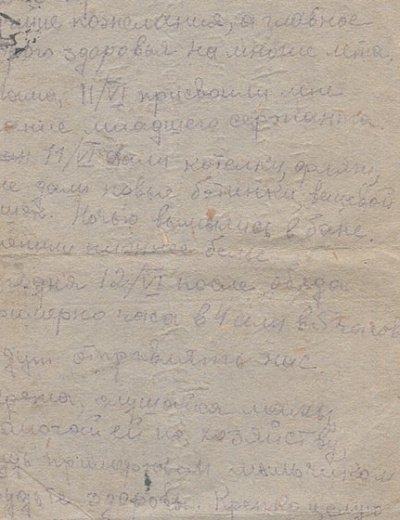 пожелания, а главное
здоровья на многие лета.
мама, 11/VI присвоили мне
младшего сержанта
11/VI дали котелки, фляги,
дали новые ботинки, вещевой
мешок. Ночью вымылись в бане.
белье
12/VI после обеда
примерно часа в 4 или в 5 часов
отправлять нас.
слушайся мамку
помогай ей по хозяйству
примерным мальчиком
здоровы. Крепко целую